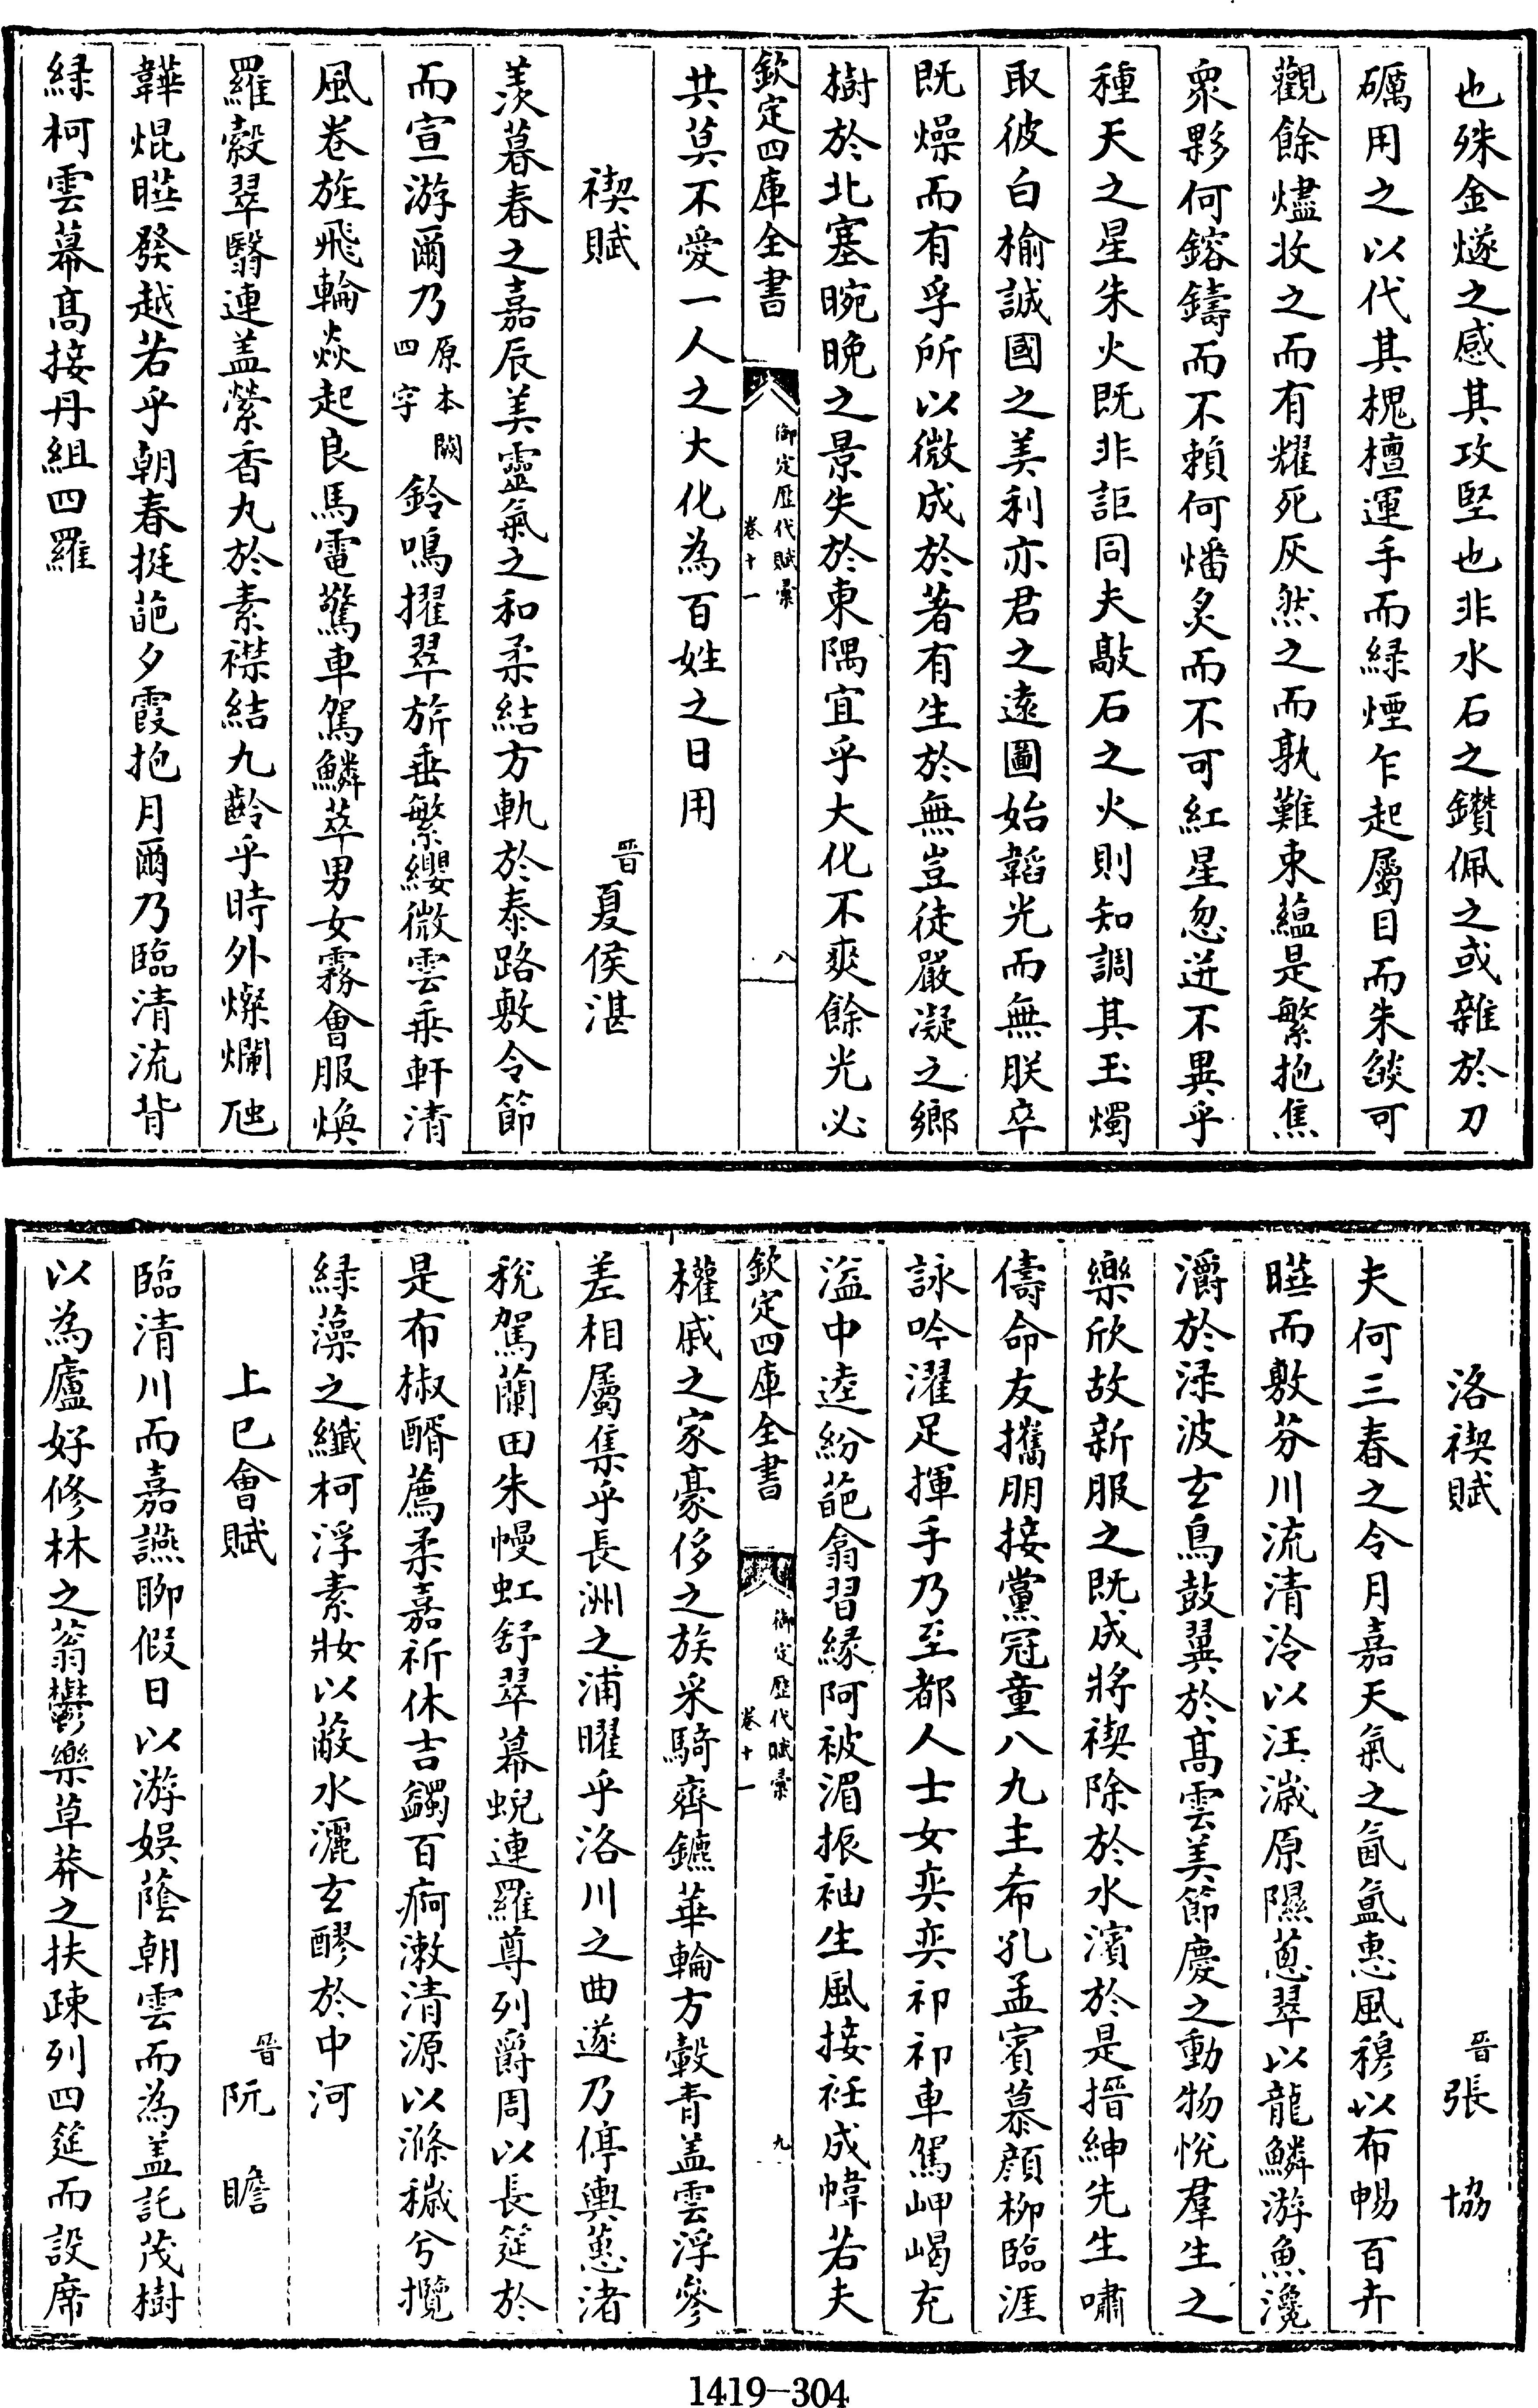 也殊金燧之感其攻堅也非水石之鑽佩之或雜於刀
礪用之以代其槐檀運手而緑煙乍起屬目而朱燄可
觀餘燼收之而有耀死灰然之而孰難束蘊是繁抱焦
衆夥何鎔鑄而不賴何燔炙而不可紅星忽迸不異乎
種天之星朱火既非詎同夫敲石之火則知調其玉燭
取彼白榆誠國之美利亦君之逺圖始韜光而無朕卒
既燥而有孚所以微成於著有生於無豈徒嚴凝之鄉
樹於北塞晼晚之景失於東隅宜乎大化不爽餘光必
欽定四庫全書 御定歴代賦彙 卷十一 八
共莫不愛一人之大化為百姓之日用
禊賦 晉夏侯湛
羨暮春之嘉辰美靈氣之和柔結方軌於泰路敷令節
而宣游爾乃原本闕四字鈴鳴擢翠旂垂繁纓微雲乗軒清
風卷旌飛輪焱起良馬電驚車駕鱗萃男女霧會服煥
羅縠翠翳連盖縈香丸於素襟結九齡乎時外燦爛虺
韡焜曣發越若乎朝春挺葩夕霞抱月爾乃臨清流背
緑柯雲幕髙接丹組四羅
洛禊賦 晉張協
夫何三春之令月嘉天氣之氤氲惠風穆以布暢百卉
曣而敷芬川流清泠以汪濊原隰蔥翠以龍鱗游魚瀺
灂於渌波玄鳥鼓翼於髙雲美節慶之動物悅羣生之
樂欣故新服之既成將禊除於水濱於是搢紳先生嘯
儔命友攜朋接黨冠童八九主希孔孟賓慕顔柳臨涯
詠吟濯足揮手乃至都人士女奕奕祁祁車駕岬嵑充
溢中逵紛葩翕習緣阿被湄振袖生風接衽成幃若夫
欽定四庫全書 御定歴代賦彙 卷十一 九
權戚之家豪侈之族采騎齊鑣華輪方轂青盖雲浮參
差相屬集乎長洲之浦曜乎洛川之曲遂乃停輿蕙渚
稅駕蘭田朱幔虹舒翠幕蜺連羅尊列爵周以長筵於
是布椒醑薦柔嘉祈休吉蠲百痾漱清源以滌穢兮攬
緑藻之纖柯浮素妝以蔽水灑玄醪於中河
上巳會賦 晉阮瞻
臨清川而嘉讌聊假日以游娛蔭朝雲而為盖託茂樹
以為廬好修林之蓊鬱樂草莽之扶疎列四筵而設席
1419-304